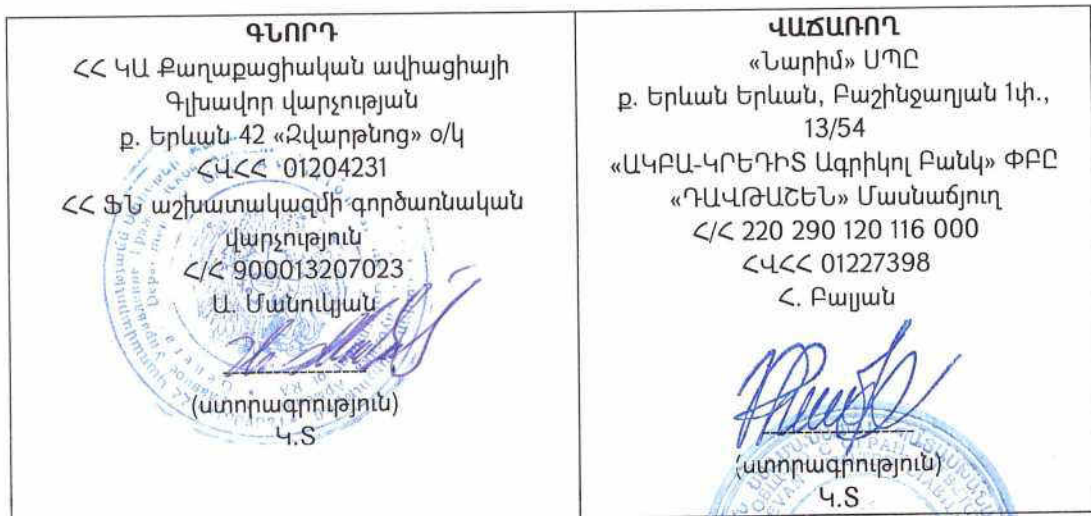 ԳՆՈՐԴ
ՀՀ ԿԱ Քաղաքացիական ավիացիայի
Գլխավոր վարչության
ք. Երևան 42 «Զվարթնոց» օ/կ
ՀՎՀՀ 01204231
ՀՀ ՖՆ աշխատակազմի գործառնական
վարչություն
Հ/Հ 900013207023
Ա. Մանուկյան
(ստորագրություն)
Կ.Տ
ՎԱՃԱՌՈՂ
«Նարիմ» ՍՊԸ
ք. Երևան Երևան, Բաշինջաղյան 1փ.,
13/54
«ԱԿԲԱ-ԿՐԵԴԻՏ Ագրիկոլ Բանկ» ՓԲԸ
«ԴԱՎԹԱՇԵՆ» Մասնաճյուղ
Հ/Հ 220 290 120 116 000
ՀՎՀՀ 01227398
Հ. Բալյան
(ստորագրություն)
Կ.Տ